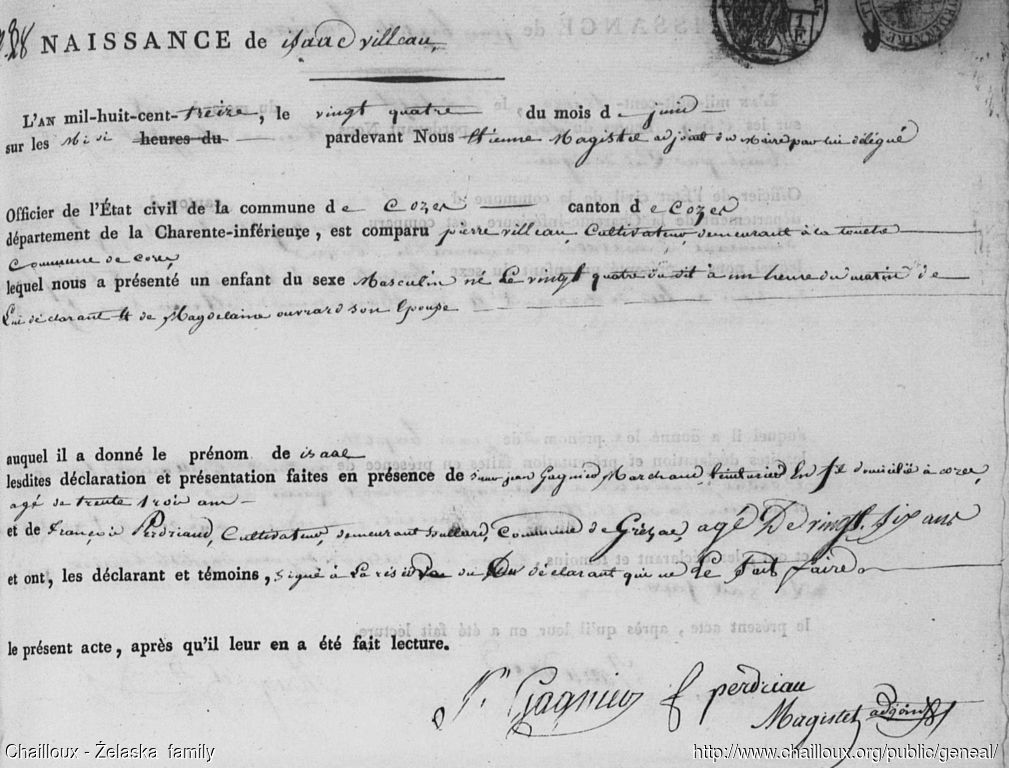 NAISSANCE de isaac villeau
L'AN mil-huit-cent-treize, le vingt quatre du mois d juin
sur les Midi heures du pardevant Nous Etienne Magistel adjoint du Maire par lui délégué
Officier de l'État civil de la commune de Cozes canton de Cozes
département de la Charente-inférieure, est comparu pierre villeau, Cultivateur, demeurant à la touche
Commune de cozes,
lequel nous a présenté un enfant du sexe Masculin né Le vingt quatre du dit à un heure du matin de
Lui déclarant Et de Magdelaine ouvrard son Epouse
auquel il a donné le prénom de isaac
lesdites déclaration et présentation faites en présence de jean Gagnier Marchand domicilié à cozes,
agé de trente trois ans
et de françois Perdriaud, Cultivateur, demeurant Commune de Grézac, agé De vingt six ans
et ont, les déclarant et témoins, signé à La réserve du déclarant qui ne Le Sait faire
le présent acte, après qu'il leur en a été fait lecture.
Gagnier perdriau
Magistel adjoint
Chailloux - Żelaska family http://www.chailloux.org/public/geneal/